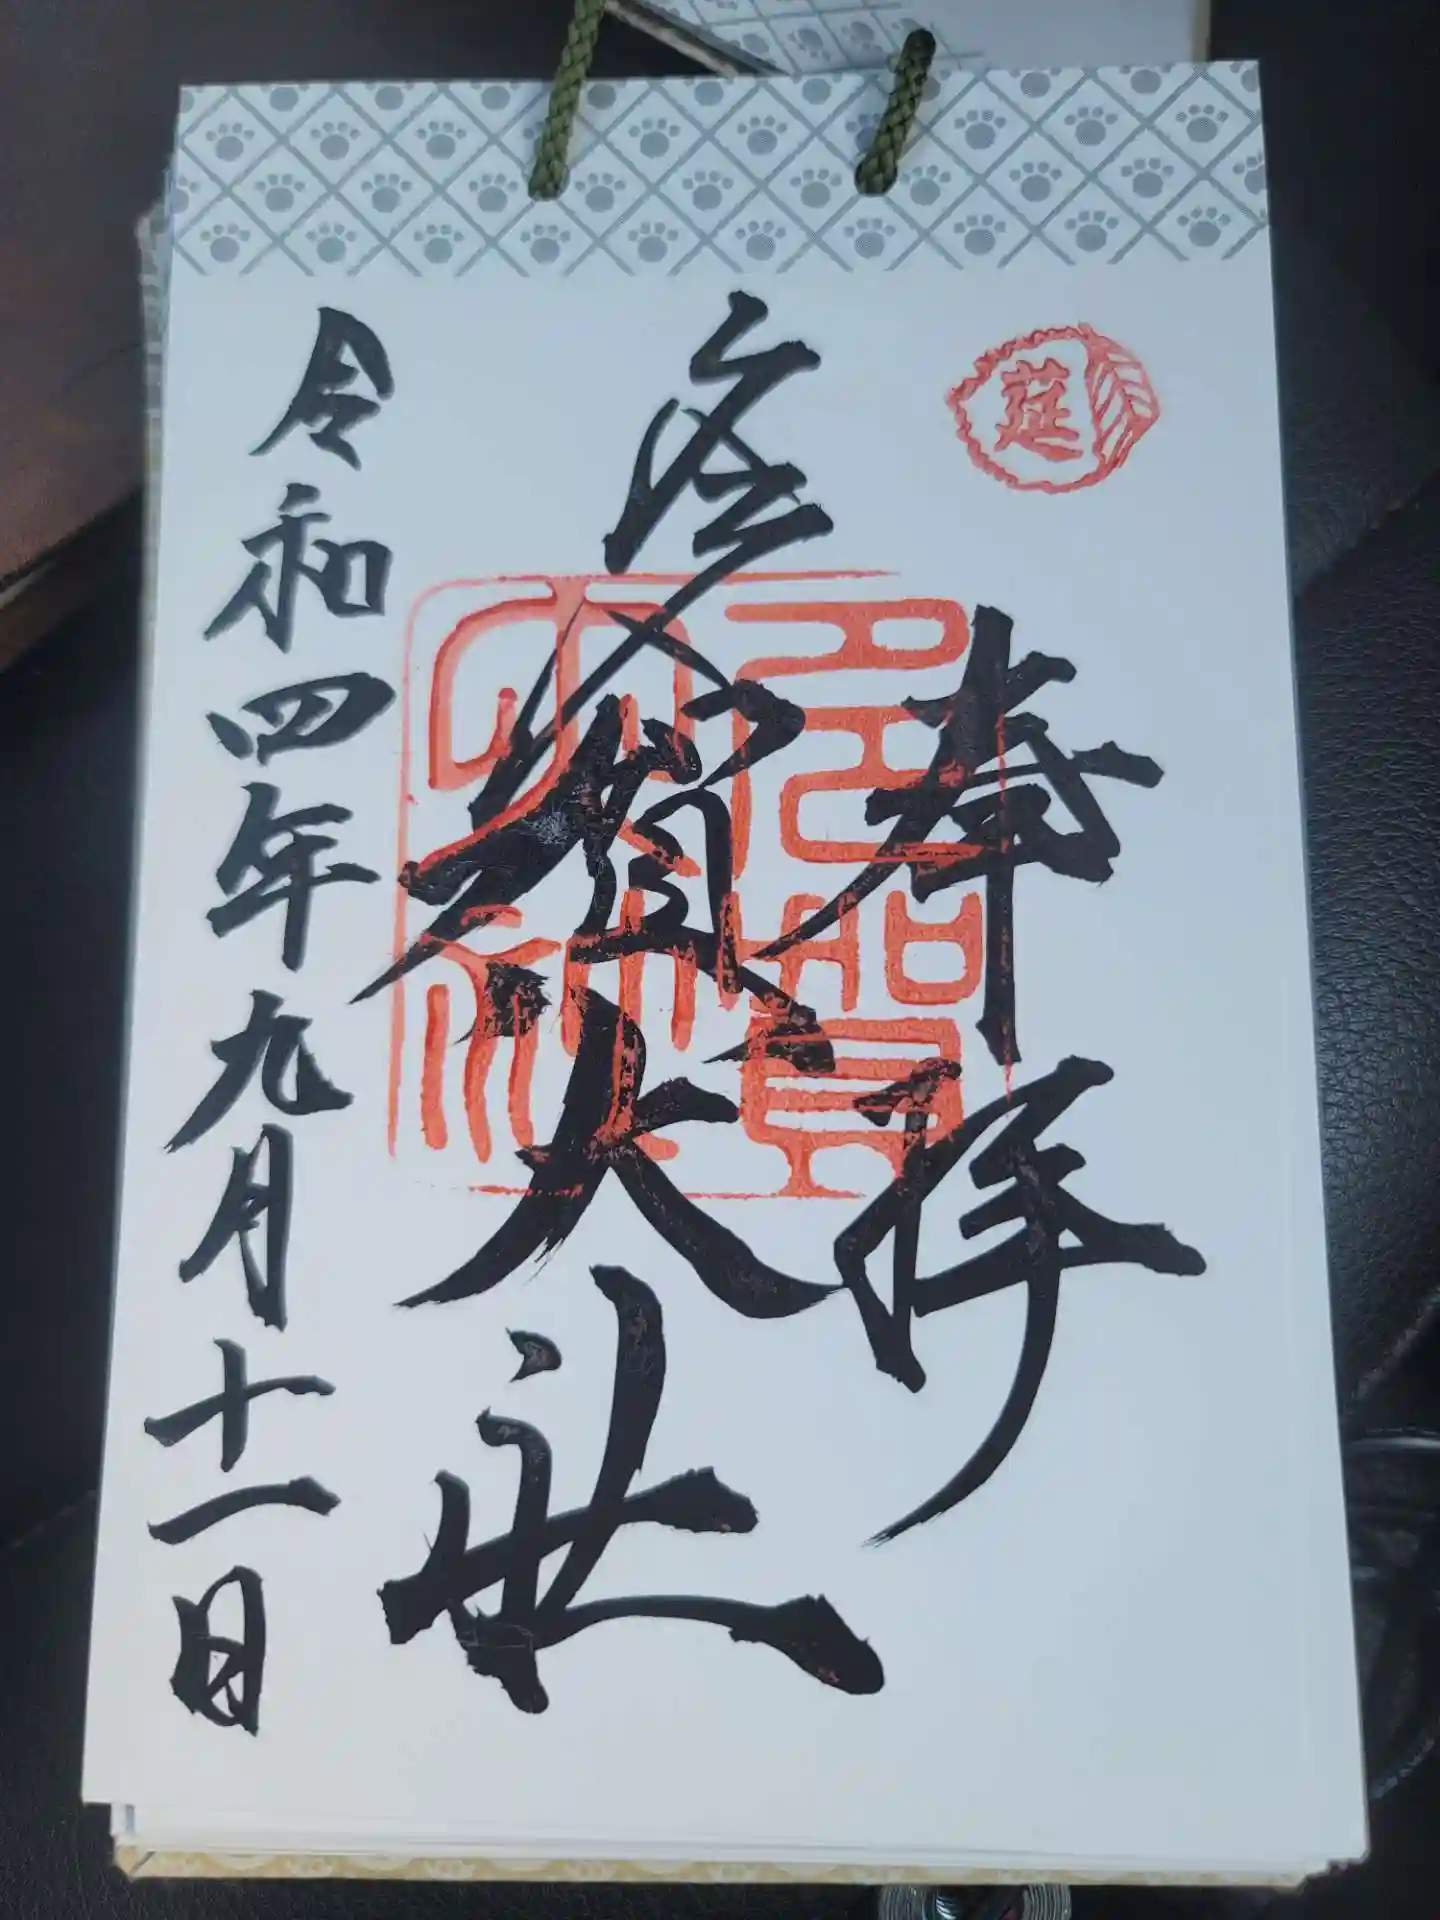 莚
奉拝
多賀大社
多賀大社
令和四年九月十一日